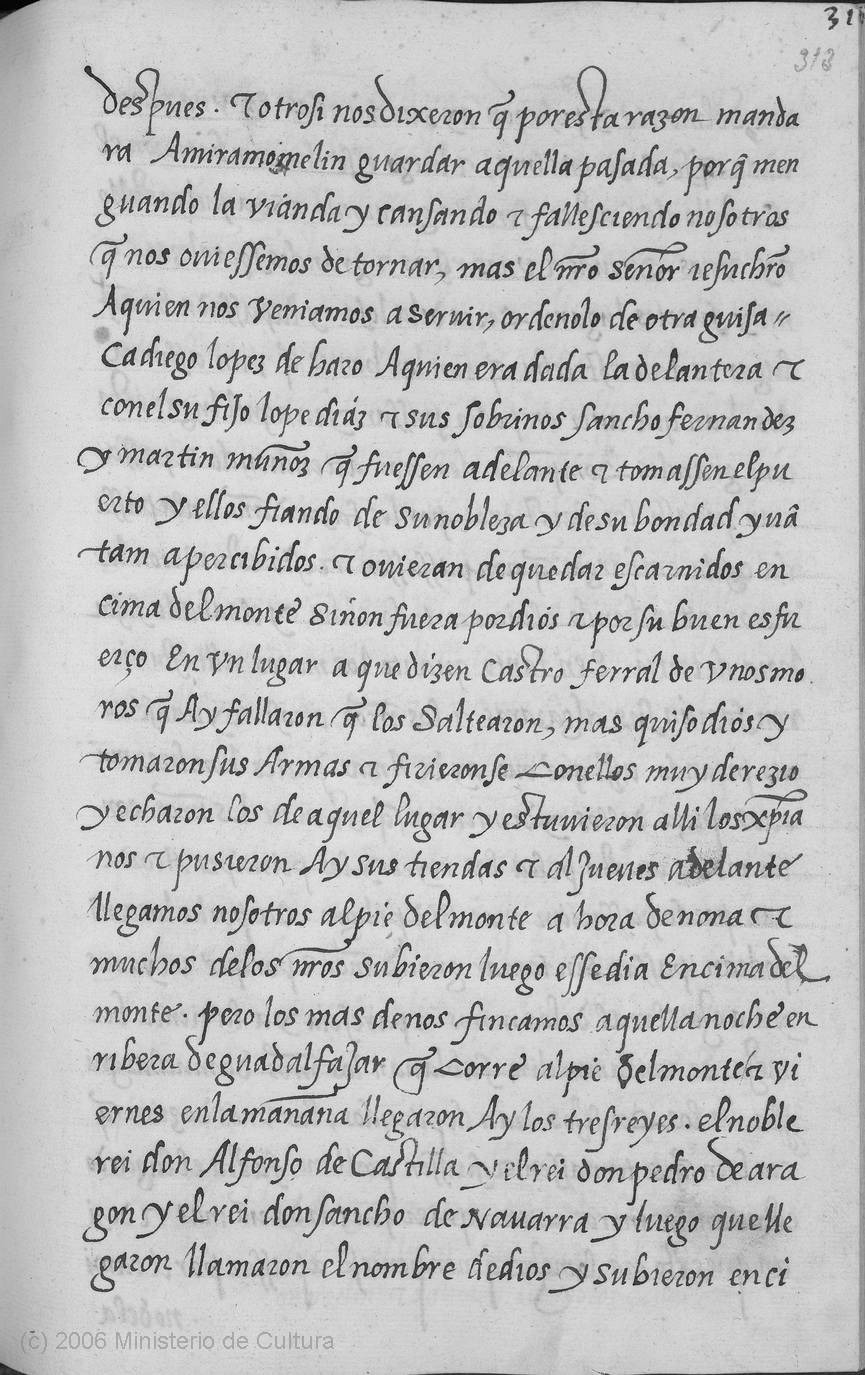 31
313
despues. ⁊ otrosi nos dixeron q̃ por esta razon manda
ra Amiramomelin guardar aquella pasada, porq̃ men
guando la vianda y cansando ⁊ fallesciendo nosotros
q̃ nos ouiessemos de tornar, mas el nr̃o señor iesuchr̃o
Aquien nos veniamos a seruir, ordenolo de otra guisa
Ca diego lopez de haro Aquien era dada la delantera ⁊
con el su fijo lope diáz ⁊ sus sobrinos sancho fernandez
y martin muñoz q̃ fuessen adelante ⁊ tomassen el pu
erto y ellos fiando de su nobleza y de su bondad yuã
tam apercibidos. ⁊ ouieran de quedar escarnidos en
cima del monte sinon fuera por diós ⁊ por su buen esfu
erço En vn lugar a que dizen Castro ferral de vnos mo
ros q̃ Ay fallaron q̃ los saltearon, mas quiso diós y
tomaron sus Armas ⁊ firieronse con ellos muy derezio
y echaron los de aquel lugar y estuuieron alli los xp̃ia
nos ⁊ pusieron Ay sus tiendas ⁊ al Jueues adelante
llegamos nosotros al pie del monte a hora de nona ⁊
muchos de los nr̃os subieron luego esse dia Encima del
monte. pero los mas de nos fincamos aquella noche en
ribera de guadalfaJar q̃ corre al pie del monte ⁊ vi
ernes en la mañana llegaron Ay los tres reyes. el noble
rei don Alfonso de Castilla y el rei don pedro de ara
gon y el rei don sancho de Nauarra y luego que lle
garon llamaron el nombre de dios y subieron enci
(c) 2006 Ministerio de Cultura